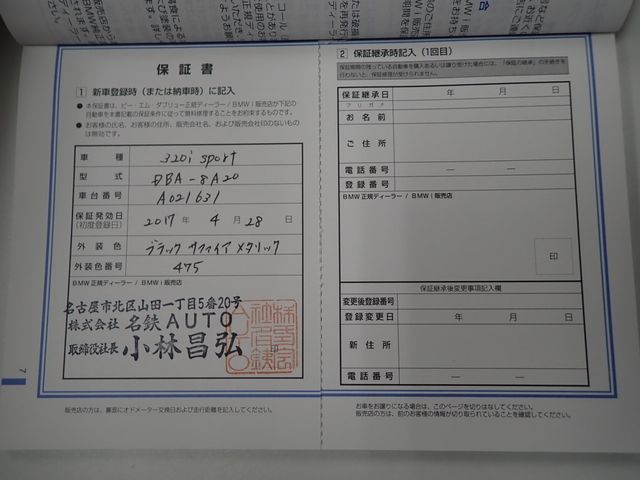 保証書
1 新車登録時（または納車時）に記入
● 本保証書は、ビー・エム・ダブリュー正規ディーラー / BMW i 販売店が下記の
自動車を本書記載の保証条件に従って無料修理することをお約束するものです。
● お客様の氏名、お客様の住所、販売会社名、および販売会社印のないもの
は無効です。
車種 320i sport
型式 DBA-8A20
車台番号 A021631
保証発効日 2017 年 4 月 28 日
(初度登録日)
外装色 ブラック サファイア メタリック
外装色番号 475
BMW 正規ディーラー / BMW i 販売店
名古屋市北区山田一丁目5番20号
株式会社 名鉄AUTO
取締役社長 小林昌弘 印
7
販売店の方は、裏面にオドメーター交換日および走行距離を記入してください。
2 保証継承時記入（1回目）
保証期間の残っている自動車を購入あるいは譲り受けた場合には、「保証の継承」の手続き
を行わないと、保証修理が受けられません。
保証継承日 年 月 日
フリガナ
お名前
ご住所
電話番号 — —
登録番号
BMW 正規ディーラー / BMW i 販売店
印
保証継承後変更事項記入欄
変更後登録番号
登録変更日 年 月 日
新住所
電話番号 — —
お車をお譲りになる場合は、このページを切りはなしてください。
販売店の方は、前のお客様の情報が切り取られていることを確認してください。